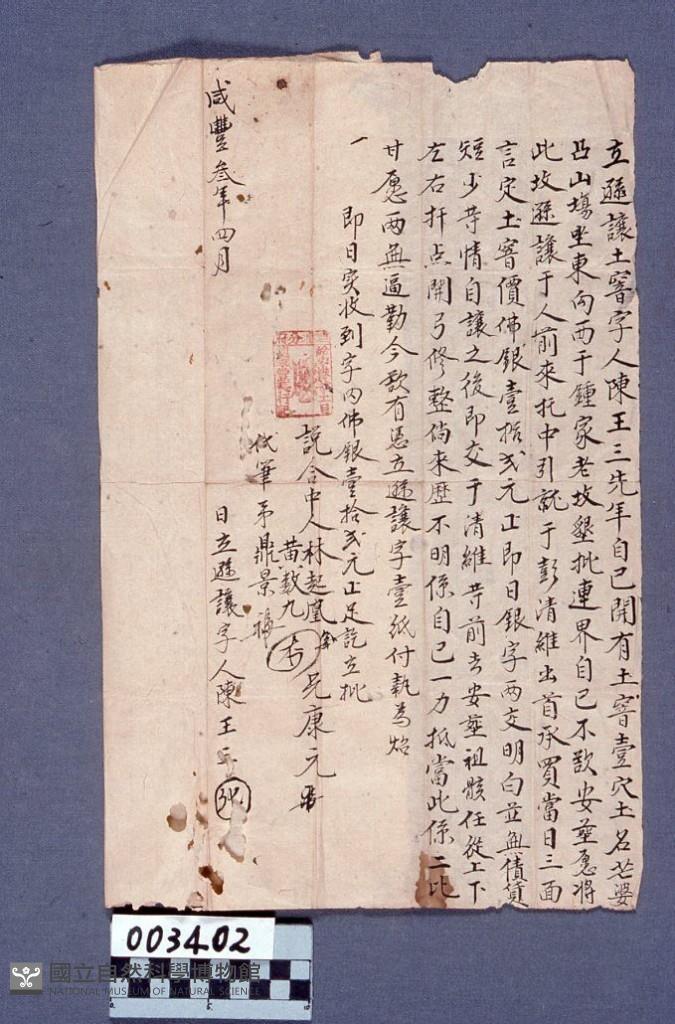 立遜讓土窨字人陳王三先年自己開有土窨壹穴土名老婆
凸山塲坐東向西于鍾家老坟墾批連界自己不欲安塟愿將
此坟遜讓于人前來托中引就于彭清維出首承買當日三面
言定土窨價佛銀壹拾弍元正即日銀字兩交明白並無債貨
短少等情自讓之後即交于清維等前去安塟祖骸任從上下
左右扦点開弓修整倘來歷不明係自己一力抵當此係二比
甘愿兩無逼勒今欲有憑立遜讓字壹紙付執為炤
一
即日實收到字內佛銀壹拾弍元正足訖立批
説合中人林起凰
黃数九
兄康元
代筆弟鼎景
咸豐叁年四月
日立遜讓字人陳王三
003402
國立自然科學博物館
NATIONAL MUSEUM OF NATURAL SCIENCE